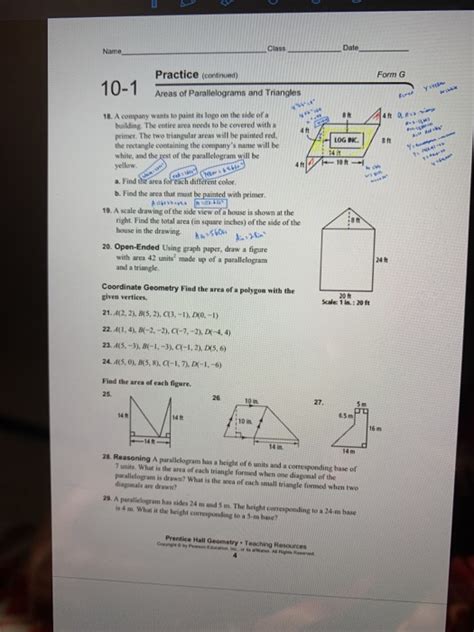 Name
Class
Date
10-1
Practice (continued)
Form G
Areas of Parallelograms and Triangles
18. A company wants to paint its logo on the side of a
building. The entire area needs to be covered with a
primer. The two triangular areas will be painted red,
the rectangle containing the company's name will be
white, and the rest of the parallelogram will be
yellow.
a. Find the area for each different color.
b. Find the area that must be painted with primer.
8 ft
4 ft
4 ft
LOG INC.
8 ft
14 ft
4 ft
10 ft
19. A scale drawing of the side view of a house is shown at the
right. Find the total area (in square inches) of the side of the
house in the drawing.
8 ft
24 ft
20 ft
Scale: 1 in. : 20 ft
20. Open-Ended Using graph paper, draw a figure
with area 42 units² made up of a parallelogram
and a triangle.
Coordinate Geometry Find the area of a polygon with the
given vertices.
21. A(2, 2), B(5, 2), C(3, −1), D(0, −1)
22. A(1, 4), B(−2, −2), C(−7, −2), D(−4, 4)
23. A(5, −3), B(−1, −3), C(−1, 2), D(5, 6)
24. A(5, 0), B(5, 8), C(−1, 7), D(−1, −6)
Find the area of each figure.
25.
14 ft
14 ft
14 ft
26.
10 in.
10 in.
14 in.
27.
5 m
6.5 m
16 m
14 m
28. Reasoning A parallelogram has a height of 6 units and a corresponding base of
7 units. What is the area of each triangle formed when one diagonal of the
parallelogram is drawn? What is the area of each small triangle formed when two
diagonals are drawn?
29. A parallelogram has sides 24 m and 5 m. The height corresponding to a 24-m base
is 4 m. What it the height corresponding to a 5-m base?
Prentice Hall Geometry • Teaching Resources
Copyright © by Pearson Education, Inc., or its affiliates. All Rights Reserved.
4